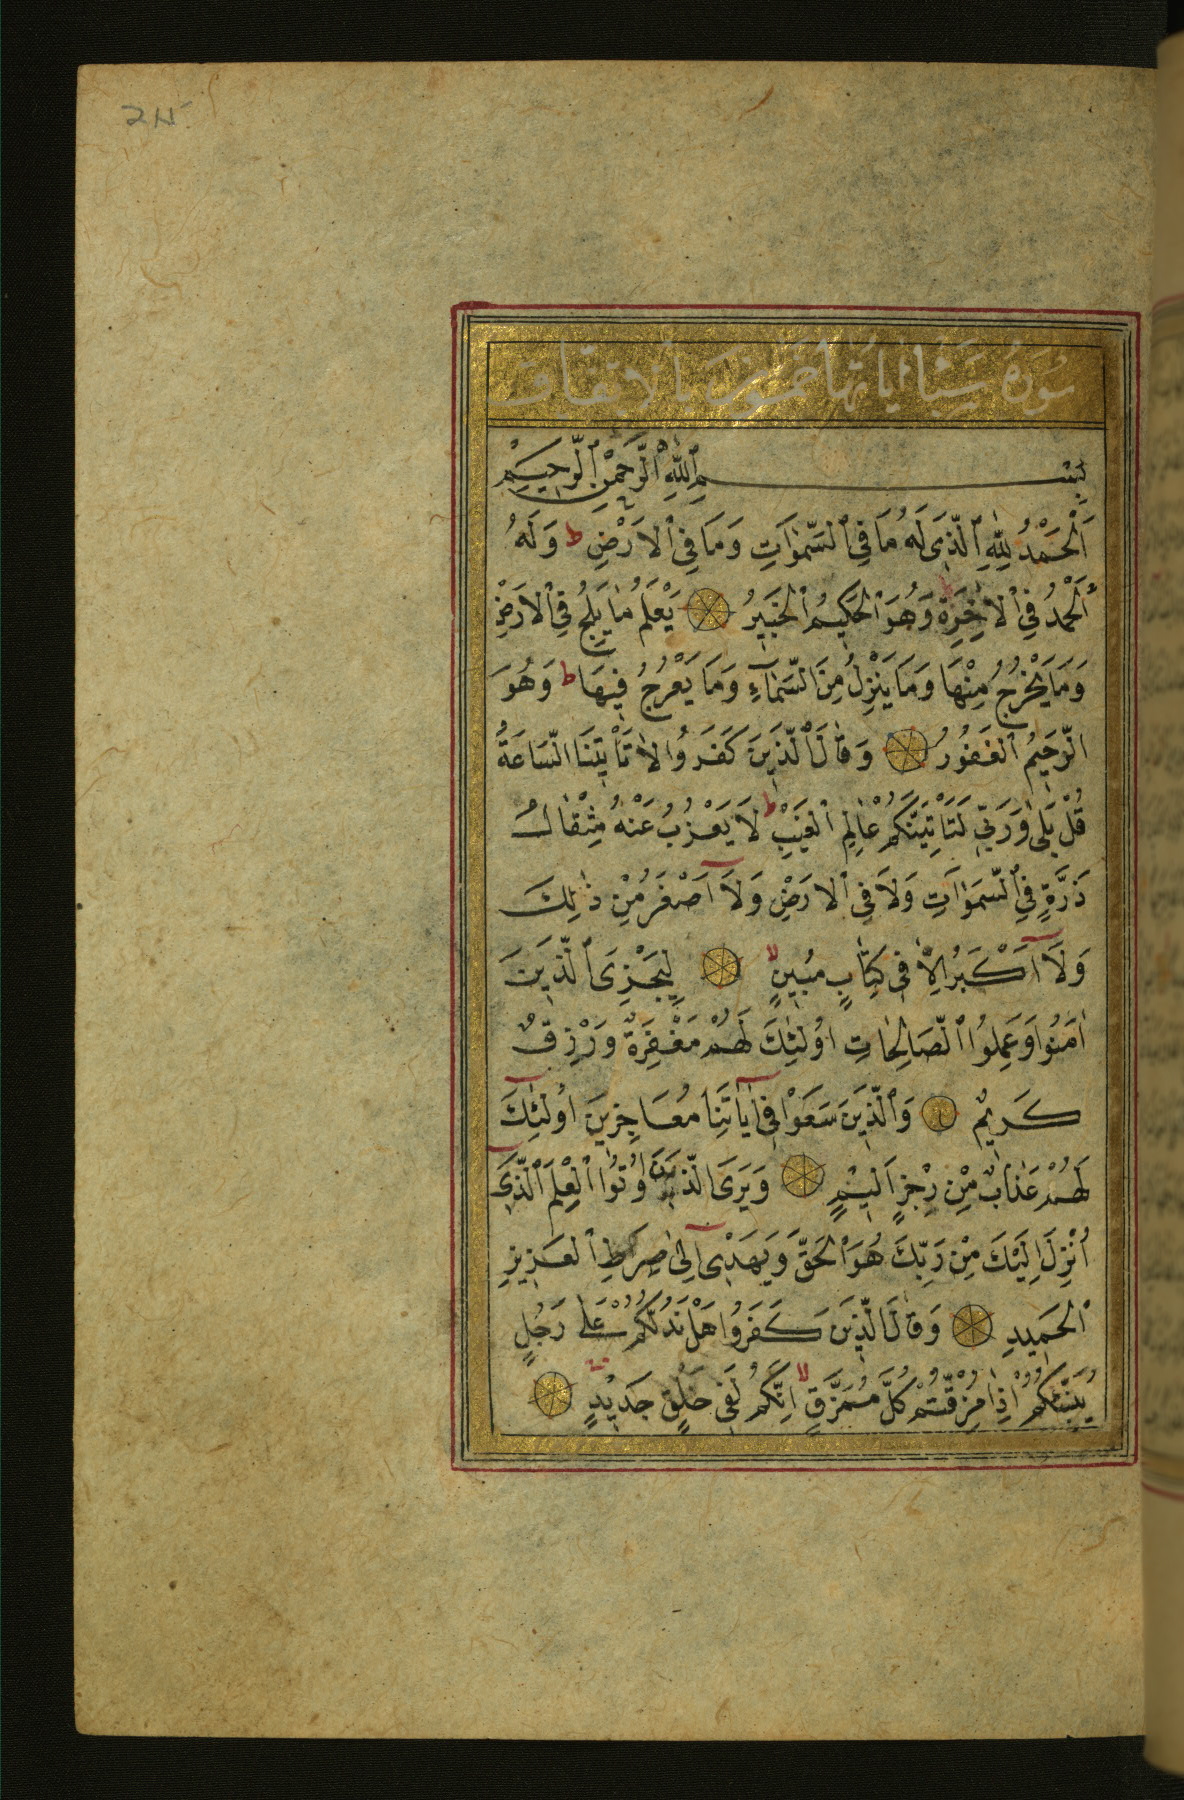 سُورَةُ سَبَأ اٰيَاتُهَا خَمْسُونَ بِالْاِتِّفَاقِ
بِسْمِ ٱللّٰهِ ٱلرَّحْمٰنِ ٱلرَّحِيمِ
اَلْحَمْدُ لِلّٰهِ ٱلَّذِى لَهُ مَا فِى ٱلسَّمٰوَاتِ وَمَا فِى ٱلْاَرْضِ ط وَلَهُ
ٱلْحَمْدُ فِى ٱلْاٰخِرَةِ ط وَهُوَ ٱلْحَكِيمُ ٱلْخَبِيرُ يَعْلَمُ مَا يَلِجُ فِى ٱلْاَرْضِ
وَمَا يَخْرُجُ مِنْهَا وَمَا يَنْزِلُ مِنَ السَّمَآءِ وَمَا يَعْرُجُ فِيهَا ط وَهُوَ
الرَّحِيمُ ٱلْغَفُورُ وَقَالَ ٱلَّذِينَ كَفَرُوا لَا تَأْتِينَا السَّاعَةُ
قُلْ بَلٰى وَرَبِّى لَتَأْتِيَنَّكُمْ عَالِمِ ٱلْغَيْبِ ط لَا يَعْزُبُ عَنْهُ مِثْقَالُ
ذَرَّةٍ فِى ٱلسَّمٰوَاتِ وَلَا فِى ٱلْاَرْضِ وَلَآ اَصْغَرُ مِنْ ذٰلِكَ
وَلَآ اَكْبَرُ اِلَّا فِى كِتَابٍ مُبِينٍ لا لِيَجْزِىَ ٱلَّذِينَ
اٰمَنُوا وَعَمِلُوا ٱلصَّالِحَاتِ اُولٰئِكَ لَهُمْ مَغْفِرَةٌ وَرِزْقٌ
كَرِيمٌ وَٱلَّذِينَ سَعَوْا فِىٓ اٰيَاتِنَا مُعَاجِزِينَ اُولٰٓئِكَ
لَهُمْ عَذَابٌ مِنْ رِجْزٍ اَلِيمٍ وَيَرَى الَّذِينَ اُوتُوا ٱلْعِلْمَ ٱلَّذِىٓ
اُنْزِلَ اِلَيْكَ مِنْ رَبِّكَ هُوَ ٱلْحَقَّ وَيَهْدِىٓ اِلٰى صِرَاطِ ٱلْعَزِيزِ
ٱلْحَمِيدِ وَقَالَ الَّذِينَ كَفَرُوا هَلْ نَدُلُّكُمْ عَلٰى رَجُلٍ
يُنَبِّئُكُمْ اِذَا مُزِّقْتُمْ كُلَّ مُمَزَّقٍ لا اِنَّكُمْ لَفِى خَلْقٍ جَدِيدٍ